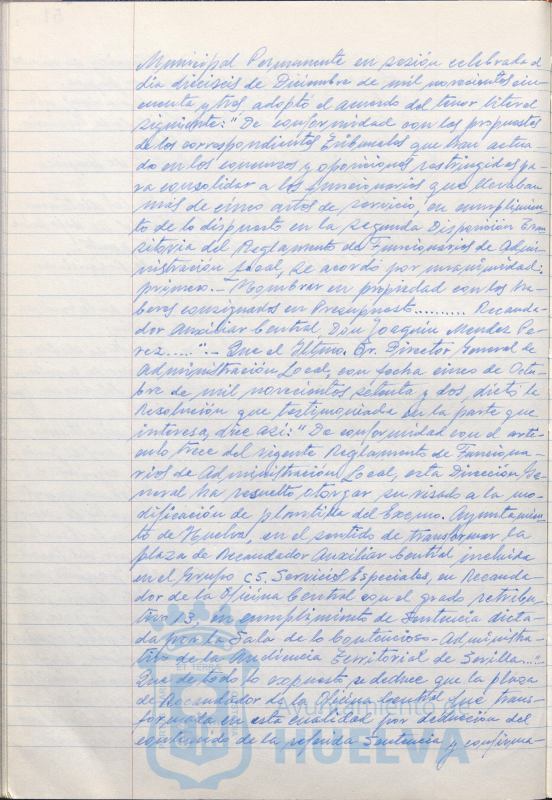 Municipal Permanente en sesión celebrada el
día dieciseis de Diciembre de mil novecientos cin-
cuenta y tres adoptó el acuerdo del tenor literal
siguiente: "De conformidad con las propuestas
de los correspondientes Tribunales que han actua-
do en los concursos y oposiciones restringidos pa-
ra consolidar a los funcionarios que llevaban
más de cinco años de servicio, en cumplimien-
to de lo dispuesto en la segunda Disposición Tran-
sitoria del Reglamento de Funcionarios de Admi-
nistración Local, se acordó por unanimidad:
primero.- Nombrar en propiedad con los ha-
beres consignados en Presupuesto.......... Recauda-
dor Auxiliar Central Don Joaquin Mendez Pe-
rez.....".- Que el Iltmo. Sr. Director General de
Administración Local, con fecha cinco de Octu-
bre de mil novecientos setenta y dos, dictó la
Resolución que testimoniada en la parte que
interesa, dice así: "De conformidad con el artí-
culo trece del vigente Reglamento de Funciona-
rios de Administración Local, esta Dirección Ge-
neral ha resuelto otorgar su visado a la mo-
dificación de plantilla del Excmo. Ayuntamien-
to de Huelva, en el sentido de transformar la
plaza de Recaudador Auxiliar Central incluida
en el Grupo C5, Servicios Especiales, en Recauda-
dor de la Oficina Central con el grado retribu-
tivo 13, en cumplimiento de Sentencia dicta-
da por la Sala de lo Contencioso-Administra-
tivo de la Audiencia Territorial de Sevilla..."-
Que de todo lo expuesto se deduce que la plaza
de Recaudador de la Oficina Central fué trans-
formada en esta cualidad por deducción del
contenido de la referida Sentencia y confirma-
Ayuntamiento de
HUELVA